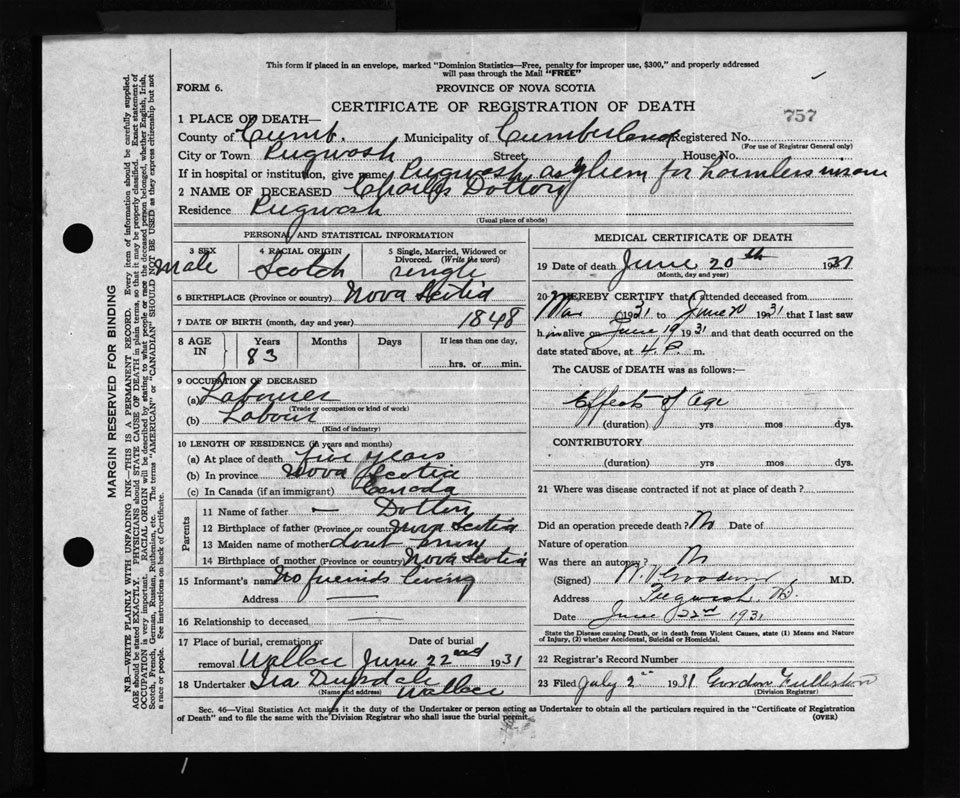 This form if placed in an envelope, marked "Dominion Statistics—Free, penalty for improper use, $300," and properly addressed
will pass through the Mail "FREE"
FORM 6.
PROVINCE OF NOVA SCOTIA
CERTIFICATE OF REGISTRATION OF DEATH
757
1 PLACE OF DEATH—
County of Cumb. Municipality of Cumberland Registered No.
(For use of Registrar General only)
City or Town Pugwash Street House No.
If in hospital or institution, give name Pugwash for harmless insane
2 NAME OF DECEASED Charles
Residence Pugwash
(Usual place of abode)
PERSONAL AND STATISTICAL INFORMATION
3 SEX 4 RACIAL ORIGIN 5 Single, Married, Widowed or
Divorced. (Write the word)
Male Scotch single
6 BIRTHPLACE (Province or country) Nova Scotia
7 DATE OF BIRTH (month, day and year) 1848
8 AGE IN Years Months Days If less than one day,
83 hrs. or min.
9 OCCUPATION OF DECEASED
(a) Labourer
(Trade or occupation or kind of work)
(b) Labour
(Kind of industry)
10 LENGTH OF RESIDENCE (in years and months)
(a) At place of death five years
(b) In province Nova Scotia
(c) In Canada (if an immigrant) Canada
Parents
11 Name of father —
12 Birthplace of father (Province or country) Nova Scotia
13 Maiden name of mother dont
14 Birthplace of mother (Province or country) Nova Scotia
15 Informant's name No friends living
Address —
16 Relationship to deceased —
17 Place of burial, cremation or Date of burial
removal Wallace June 22nd 1931
18 Undertaker Ira Wallace
(Name and address)
MEDICAL CERTIFICATE OF DEATH
19 Date of death June 20th 1931
(Month, day and year)
20 I HEREBY CERTIFY that I attended deceased from
Mar 1931 to June 20 1931 that I last saw
him alive on June 19 1931 and that death occurred on the
date stated above, at 4 P. m.
The CAUSE of DEATH was as follows:—
Effects of age
(duration) yrs mos dys.
CONTRIBUTORY
(duration) yrs. mos. dys.
21 Where was disease contracted if not at place of death?
Did an operation precede death? No Date of
Nature of operation
Was there an autopsy? No
(Signed) M.D.
Address Pugwash, N.S.
Date June 22nd 1931
State the Disease causing Death, or in death from Violent Causes, state (1) Means and Nature
of Injury, (2) whether Accidental, Suicidal or Homicidal.
22 Registrar's Record Number
23 Filed July 2" 1931 Gordon Fullerton
(Division Registrar)
Sec. 46—Vital Statistics Act makes it the duty of the Undertaker or person acting as Undertaker to obtain all the particulars required in the "Certificate of Registration
of Death" and to file the same with the Division Registrar who shall issue the burial permit.
(OVER)
MARGIN RESERVED FOR BINDING
N.B.—WRITE PLAINLY WITH UNFADING INK—THIS IS A PERMANENT RECORD. Every item of information should be carefully supplied.
AGE should be stated EXACTLY. PHYSICIANS should STATE CAUSE OF DEATH in plain terms, so that it may be properly classified. Exact statement of
OCCUPATION is very important. RACIAL ORIGIN will be described by stating to what people or race the deceased person belonged, whether English, Irish,
Scotch, French, German, Russian, Ruthenian, etc. The terms "AMERICAN" or "CANADIAN" SHOULD NOT BE USED as they express citizenship but not
a race or people. See instructions on back of Certificate.